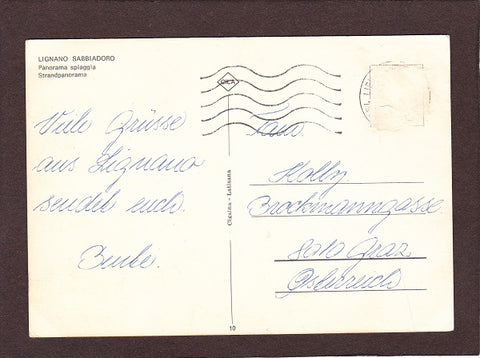 LIGNANO SABBIADORO
Panorama spiaggia
Strandpanorama
Viele Grüsse
aus Lignano
sendet euch
Cigaina - Latisana
Holly
Brockmanngasse
Graz
Österreich
10